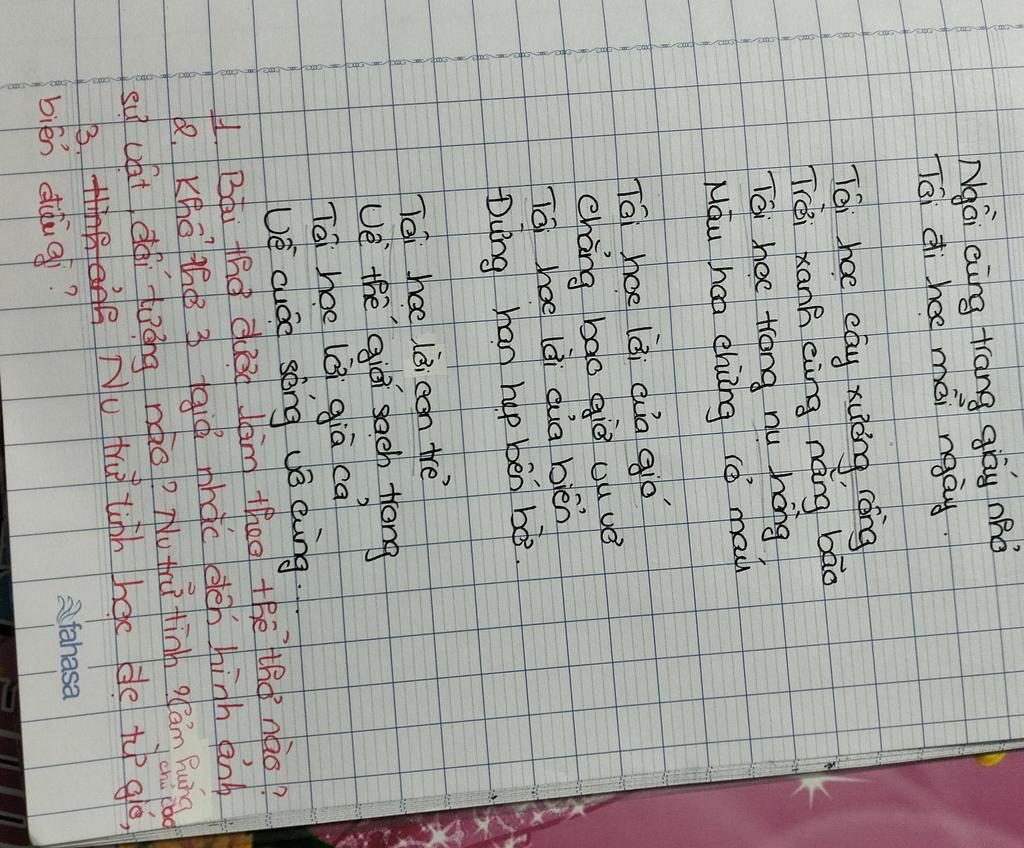 Ngồi cùng trang giấy nhỏ
Tôi đi học mỗi ngày.
Tôi học cây xương rồng
Trời xanh cùng nắng bão
Tôi học trong nụ hồng
Màu hoa chừng rỏ máu
Tôi học lời của gió
Chẳng bao giờ vu vơ
Tôi học lời của biển
Đừng hạn hẹp bến bờ.
Tôi học lời con trẻ
Về thế giới sạch trong
Tôi học lời già cả
Về cuộc sống vô cùng...
1. Bài thơ được làm theo thể thơ nào?
2. Khổ thơ 3 tgiả nhắc đến hình ảnh
sự vật, đối tượng nào? Nv trử tình? Cảm hứng
chủ đạo
3. Hình ảnh Nv trử tình học đc từ gió,
biển điều gì?
fahasa